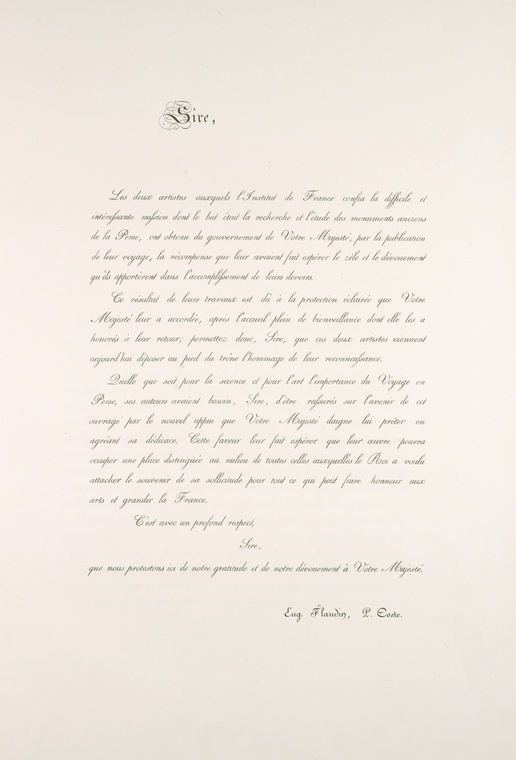 Sire,
Les deux artistes auxquels l'Institut de France confia la difficile et
intéressante mission dont le but était la recherche et l'étude des monuments anciens
de la Perse, ont obtenu du gouvernement de Votre Majesté, par la publication
de leur voyage, la récompense que leur avaient fait espérer le zèle et le dévouement
qu'ils apportèrent dans l'accomplissement de leurs devoirs.
Ce résultat de leurs travaux est dû à la protection éclairée que Votre
Majesté leur a accordée, après l'accueil plein de bienveillance dont elle les a
honorés à leur retour; permettez donc, Sire, que ces deux artistes viennent
aujourd'hui déposer au pied du trône l'hommage de leur reconnaissance.
Quelle que soit pour la science et pour l'art l'importance du Voyage en
Perse, ses auteurs avaient besoin, Sire, d'être rassurés sur l'avenir de cet
ouvrage par le nouvel appui que Votre Majesté daigne lui prêter en
agréant sa dédicace. Cette faveur leur fait espérer que leur œuvre pourra
occuper une place distinguée au milieu de toutes celles auxquelles le Roi a voulu
attacher le souvenir de sa sollicitude pour tout ce qui peut faire honneur aux
arts et grandir la France.
C'est avec un profond respect,
Sire,
que nous protestons ici de notre gratitude et de notre dévouement à Votre Majesté.
Eug. Flandin, P. Coste.